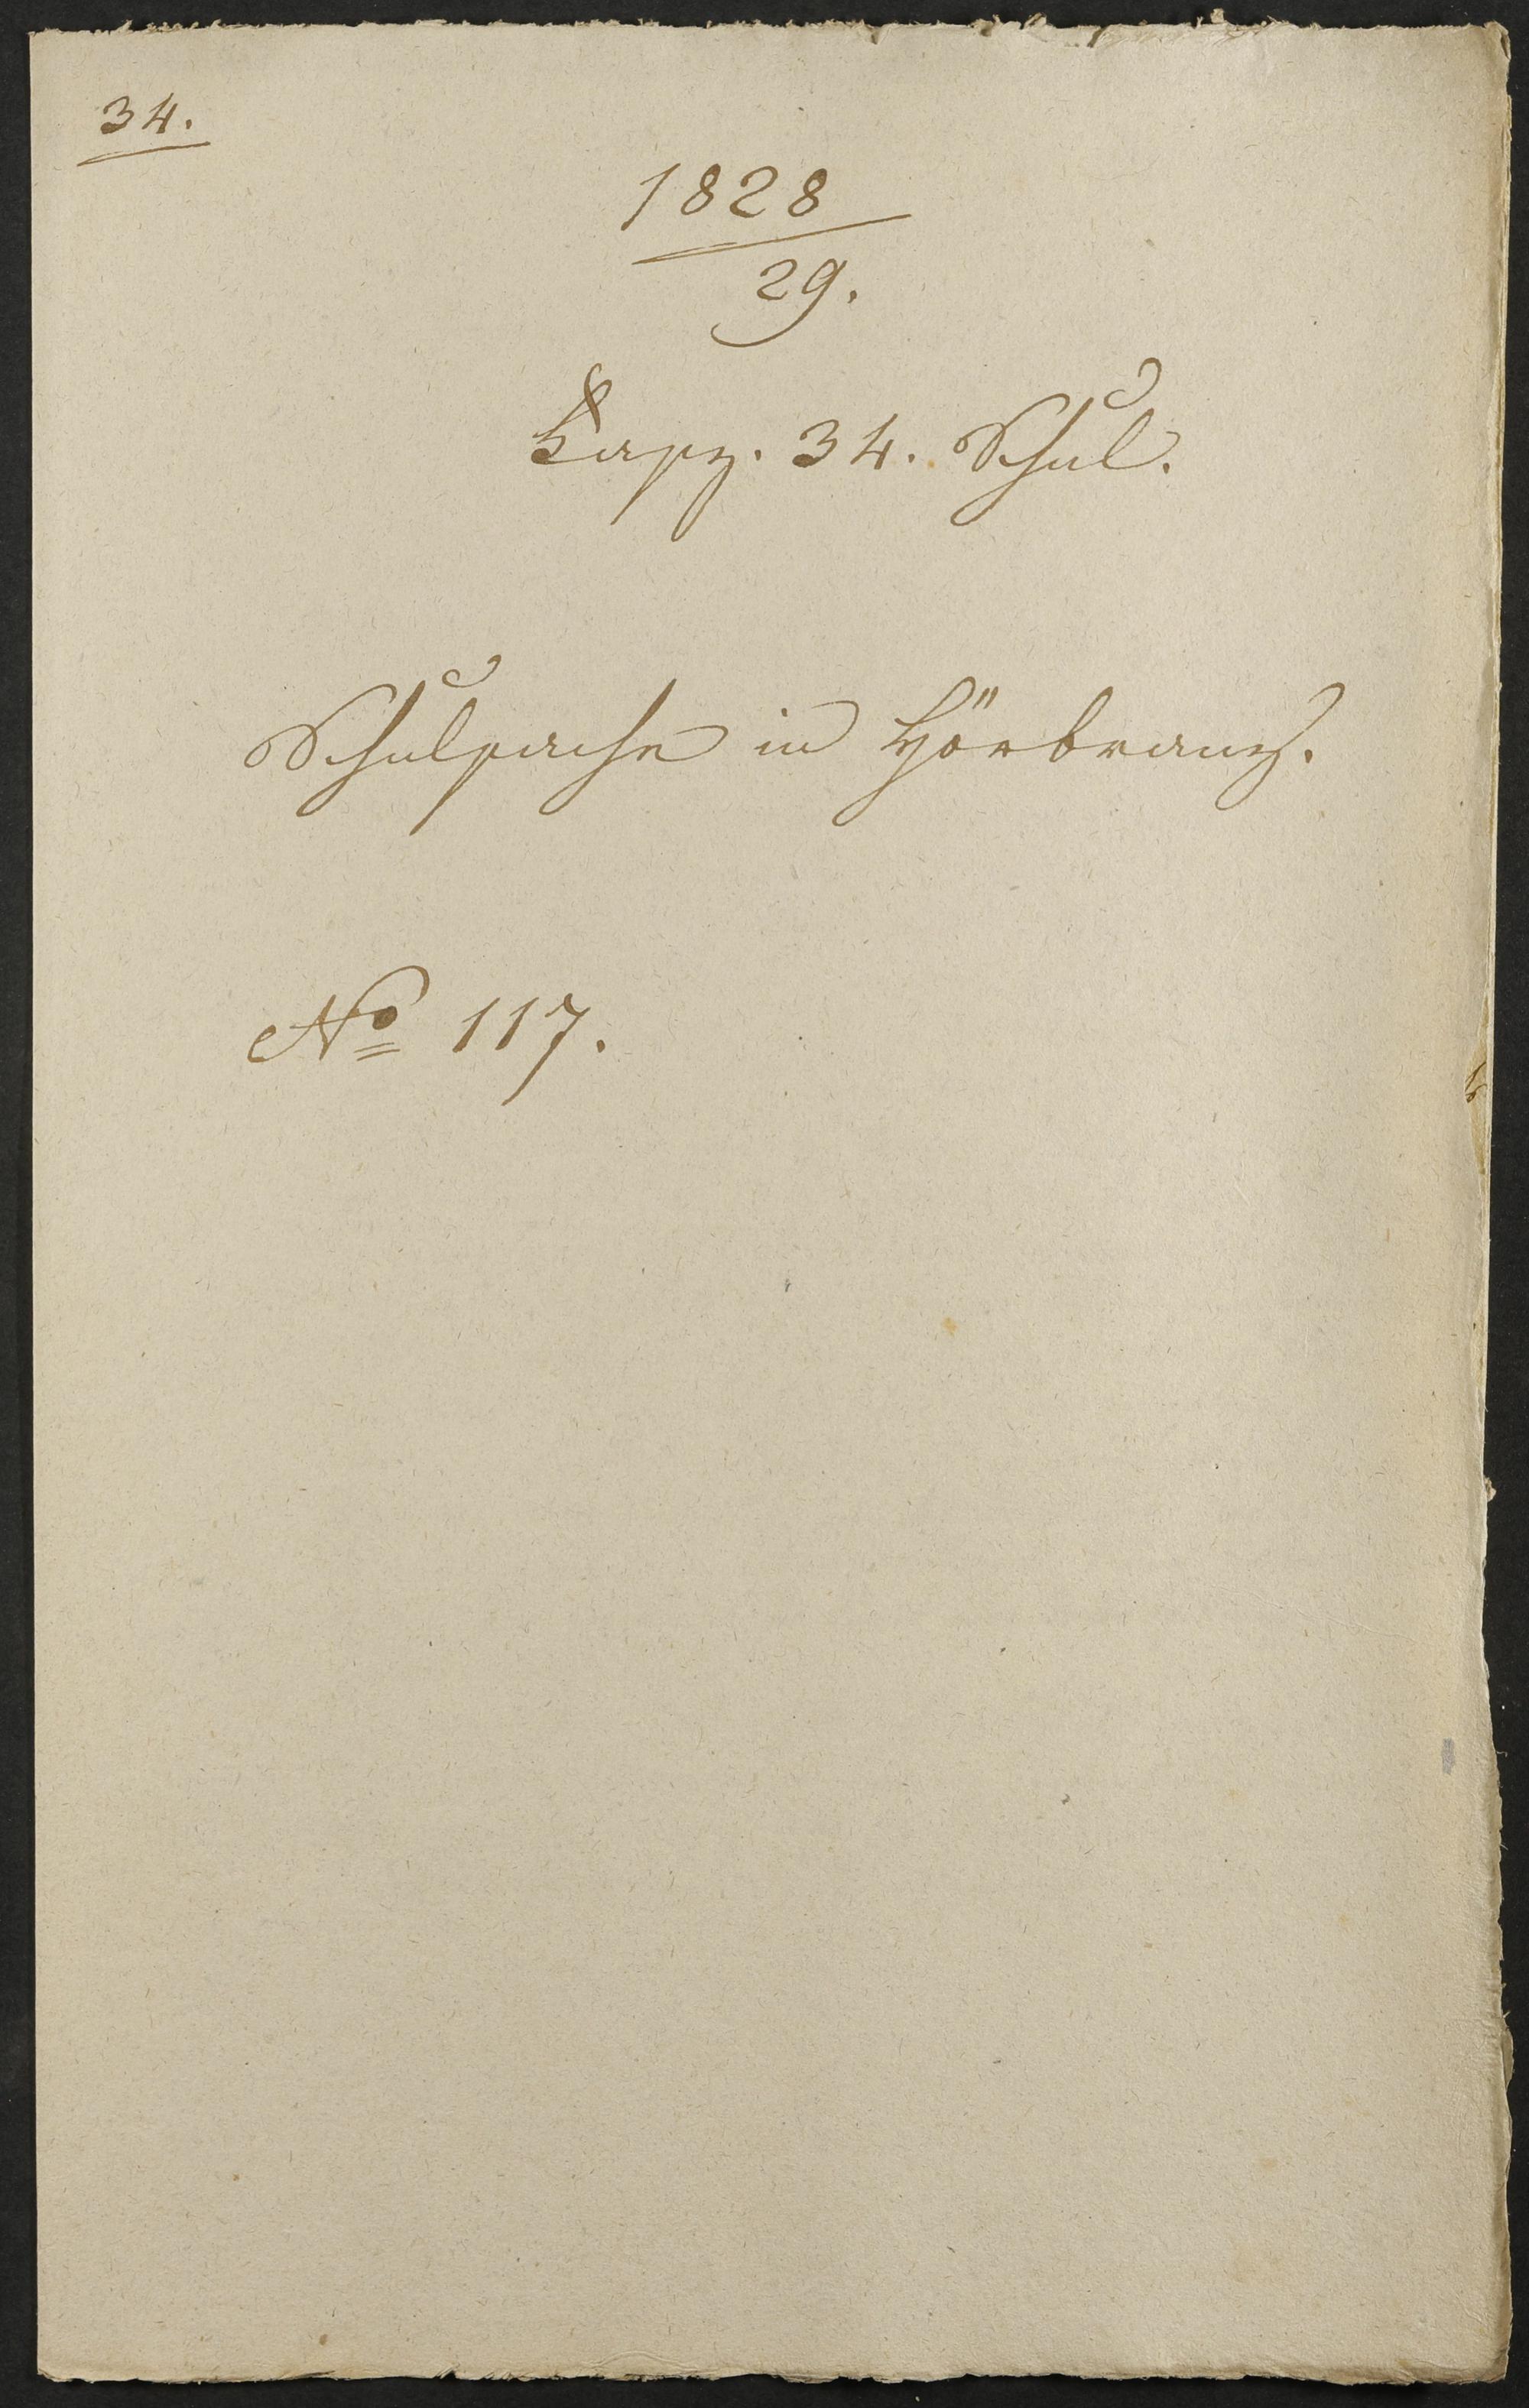 34.
1828
29.
Fasz. 34. Schul.
Schulsache in Hörbranz.
No 117.